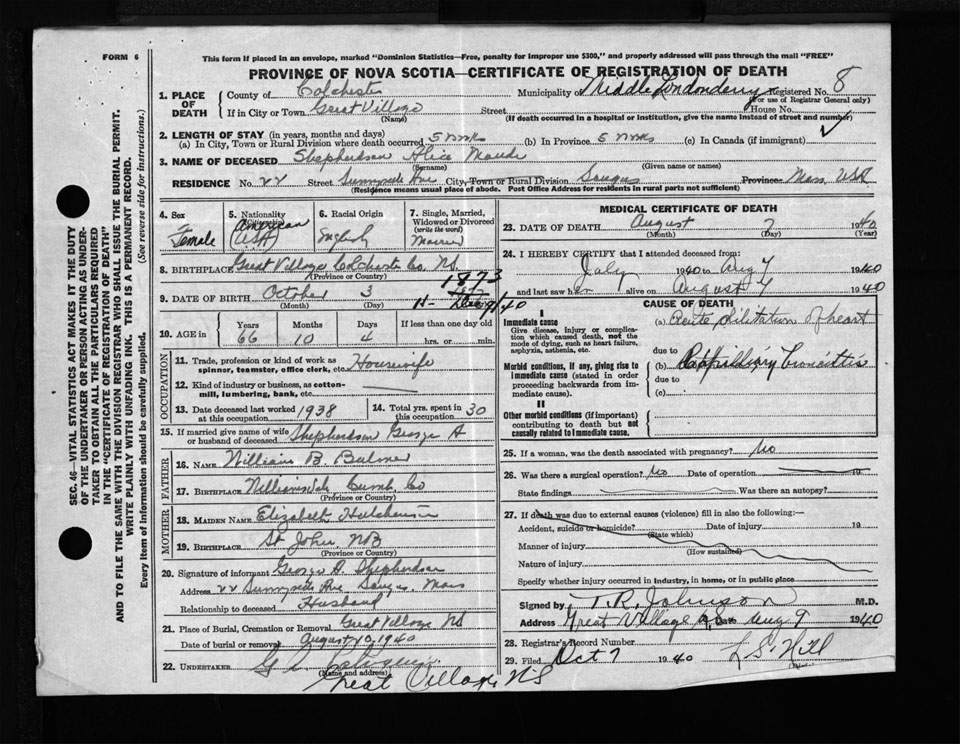 FORM 6
This form if placed in an envelope, marked "Dominion Statistics—Free, penalty for improper use $300," and properly addressed will pass through the mail "FREE"
PROVINCE OF NOVA SCOTIA—CERTIFICATE OF REGISTRATION OF DEATH
SEC. 46—VITAL STATISTICS ACT MAKES IT THE DUTY
OF THE UNDERTAKER OR PERSON ACTING AS UNDER-
TAKER TO OBTAIN ALL THE PARTICULARS REQUIRED
IN THE "CERTIFICATE OF REGISTRATION OF DEATH"
AND TO FILE THE SAME WITH THE DIVISION REGISTRAR WHO SHALL ISSUE THE BURIAL PERMIT.
WRITE PLAINLY WITH UNFADING INK. THIS IS A PERMANENT RECORD.
Every item of information should be carefully supplied. (See reverse side for instructions.)
1. PLACE OF DEATH
County of Colchester Municipality of Middle Londonderry Registered No. 8
(For use of Registrar General only)
If in City or Town Great Village Street House No.
(Name) (If death occurred in a hospital or institution, give the name instead of street and number)
2. LENGTH OF STAY (in years, months and days)
(a) In City, Town or Rural Division where death occurred 5 wks (b) In Province 5 wks (c) In Canada (if immigrant)
3. NAME OF DECEASED Shepherdson Alice Maude
(Surname) (Given name or names)
RESIDENCE No. 22 Street Sunnyside Ave City, Town or Rural Division Saugus Province Mass, USA
(Residence means usual place of abode. Post Office Address for residents in rural parts not sufficient)
4. Sex
Female
5. Nationality
(Citizenship)
American
(USA)
6. Racial Origin
English
7. Single, Married,
Widowed or Divorced
(write the word)
Married
8. BIRTHPLACE Great Village Colchester Co. NS.
(Province or Country)
1873
9. DATE OF BIRTH October 3
(Month) (Day)
10. AGE in
Years 66
Months 10
Days 4
If less than one day old
hrs. or min.
OCCUPATION
11. Trade, profession or kind of work as
spinner, teamster, office clerk, etc. Housewife
12. Kind of industry or business, as cotton-
mill, lumbering, bank, etc.
13. Date deceased last worked
at this occupation 1938
14. Total yrs. spent in
this occupation 30
15. If married give name of wife
or husband of deceased Shepherdson George A
FATHER
16. NAME William B. Bulmer
17. BIRTHPLACE Cumb. Co
(Province or Country)
MOTHER
18. MAIDEN NAME Elizabeth Hutchinson
19. BIRTHPLACE St John, NB
(Province or Country)
20. Signature of informant George A. Shepherdson
Address 22 Sunnyside Ave Saugus, Mass
Relationship to deceased Husband
21. Place of Burial, Cremation or Removal Great Village NS
Date of burial or removal August 10, 1940
22. UNDERTAKER
(Name and address)
Great Village, NS
MEDICAL CERTIFICATE OF DEATH
23. DATE OF DEATH August 7 1940
(Month) (Day) (Year)
24. I HEREBY CERTIFY that I attended deceased from:
July 1940 to Aug 7 1940
and last saw her alive on August 7 1940
CAUSE OF DEATH
I
Immediate cause
Give disease, injury or complica-
tion which caused death, not the
mode of dying, such as heart failure,
asphyxia, asthenia, etc.
(a) Acute dilitation of heart
due to
Morbid conditions, if any, giving rise to
immediate cause (stated in order
proceeding backwards from im-
mediate cause).
(b)
due to
(c)
II
Other morbid conditions (if important)
contributing to death but not
causally related to immediate cause.
25. If a woman, was the death associated with pregnancy? No
26. Was there a surgical operation? No Date of operation 19
State findings Was there an autopsy?
27. If death was due to external causes (violence) fill in also the following:—
Accident, suicide or homicide? Date of injury 19
(State which)
Manner of injury
(How sustained)
Nature of injury
Specify whether injury occurred in industry, in home, or in public place
Signed by T. R. Johnson M.D.
Address Great Village NS Date Aug 9 1940
28. Registrar's Record Number
29. Filed Oct 7 1940 L S Hill